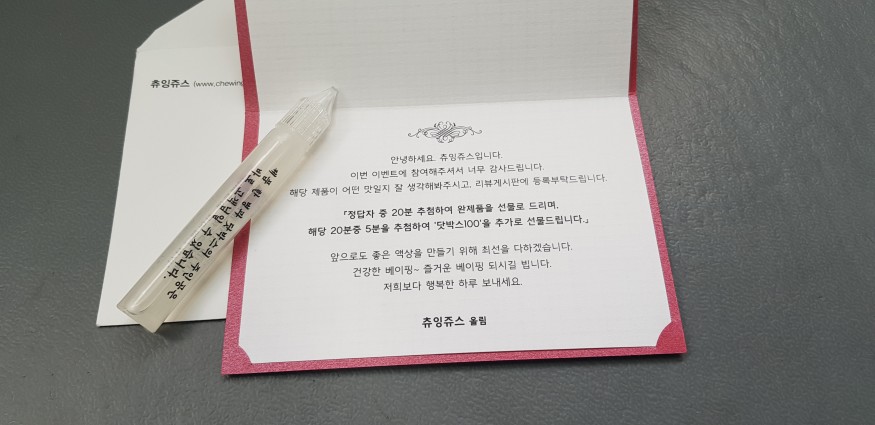 츄잉쥬스 (www.chewing
안녕하세요. 츄잉쥬스입니다.
이번 이벤트에 참여해주셔서 너무 감사드립니다.
해당 제품이 어떤 맛일지 잘 생각해봐주시고, 리뷰게시판에 등록부탁드립니다.
「정답자 중 20분 추첨하여 완제품을 선물로 드리며,
해당 20분중 5분을 추첨하여 '닷박스100'을 추가로 선물드립니다.」
앞으로도 좋은 액상을 만들기 위해 최선을 다하겠습니다.
건강한 베이핑~ 즐거운 베이핑 되시길 빕니다.
저희보다 행복한 하루 보내세요.
츄잉쥬스 올림
제품 한 병과 닷박스의 주인공은
바로 고객님일 수 있습니다.